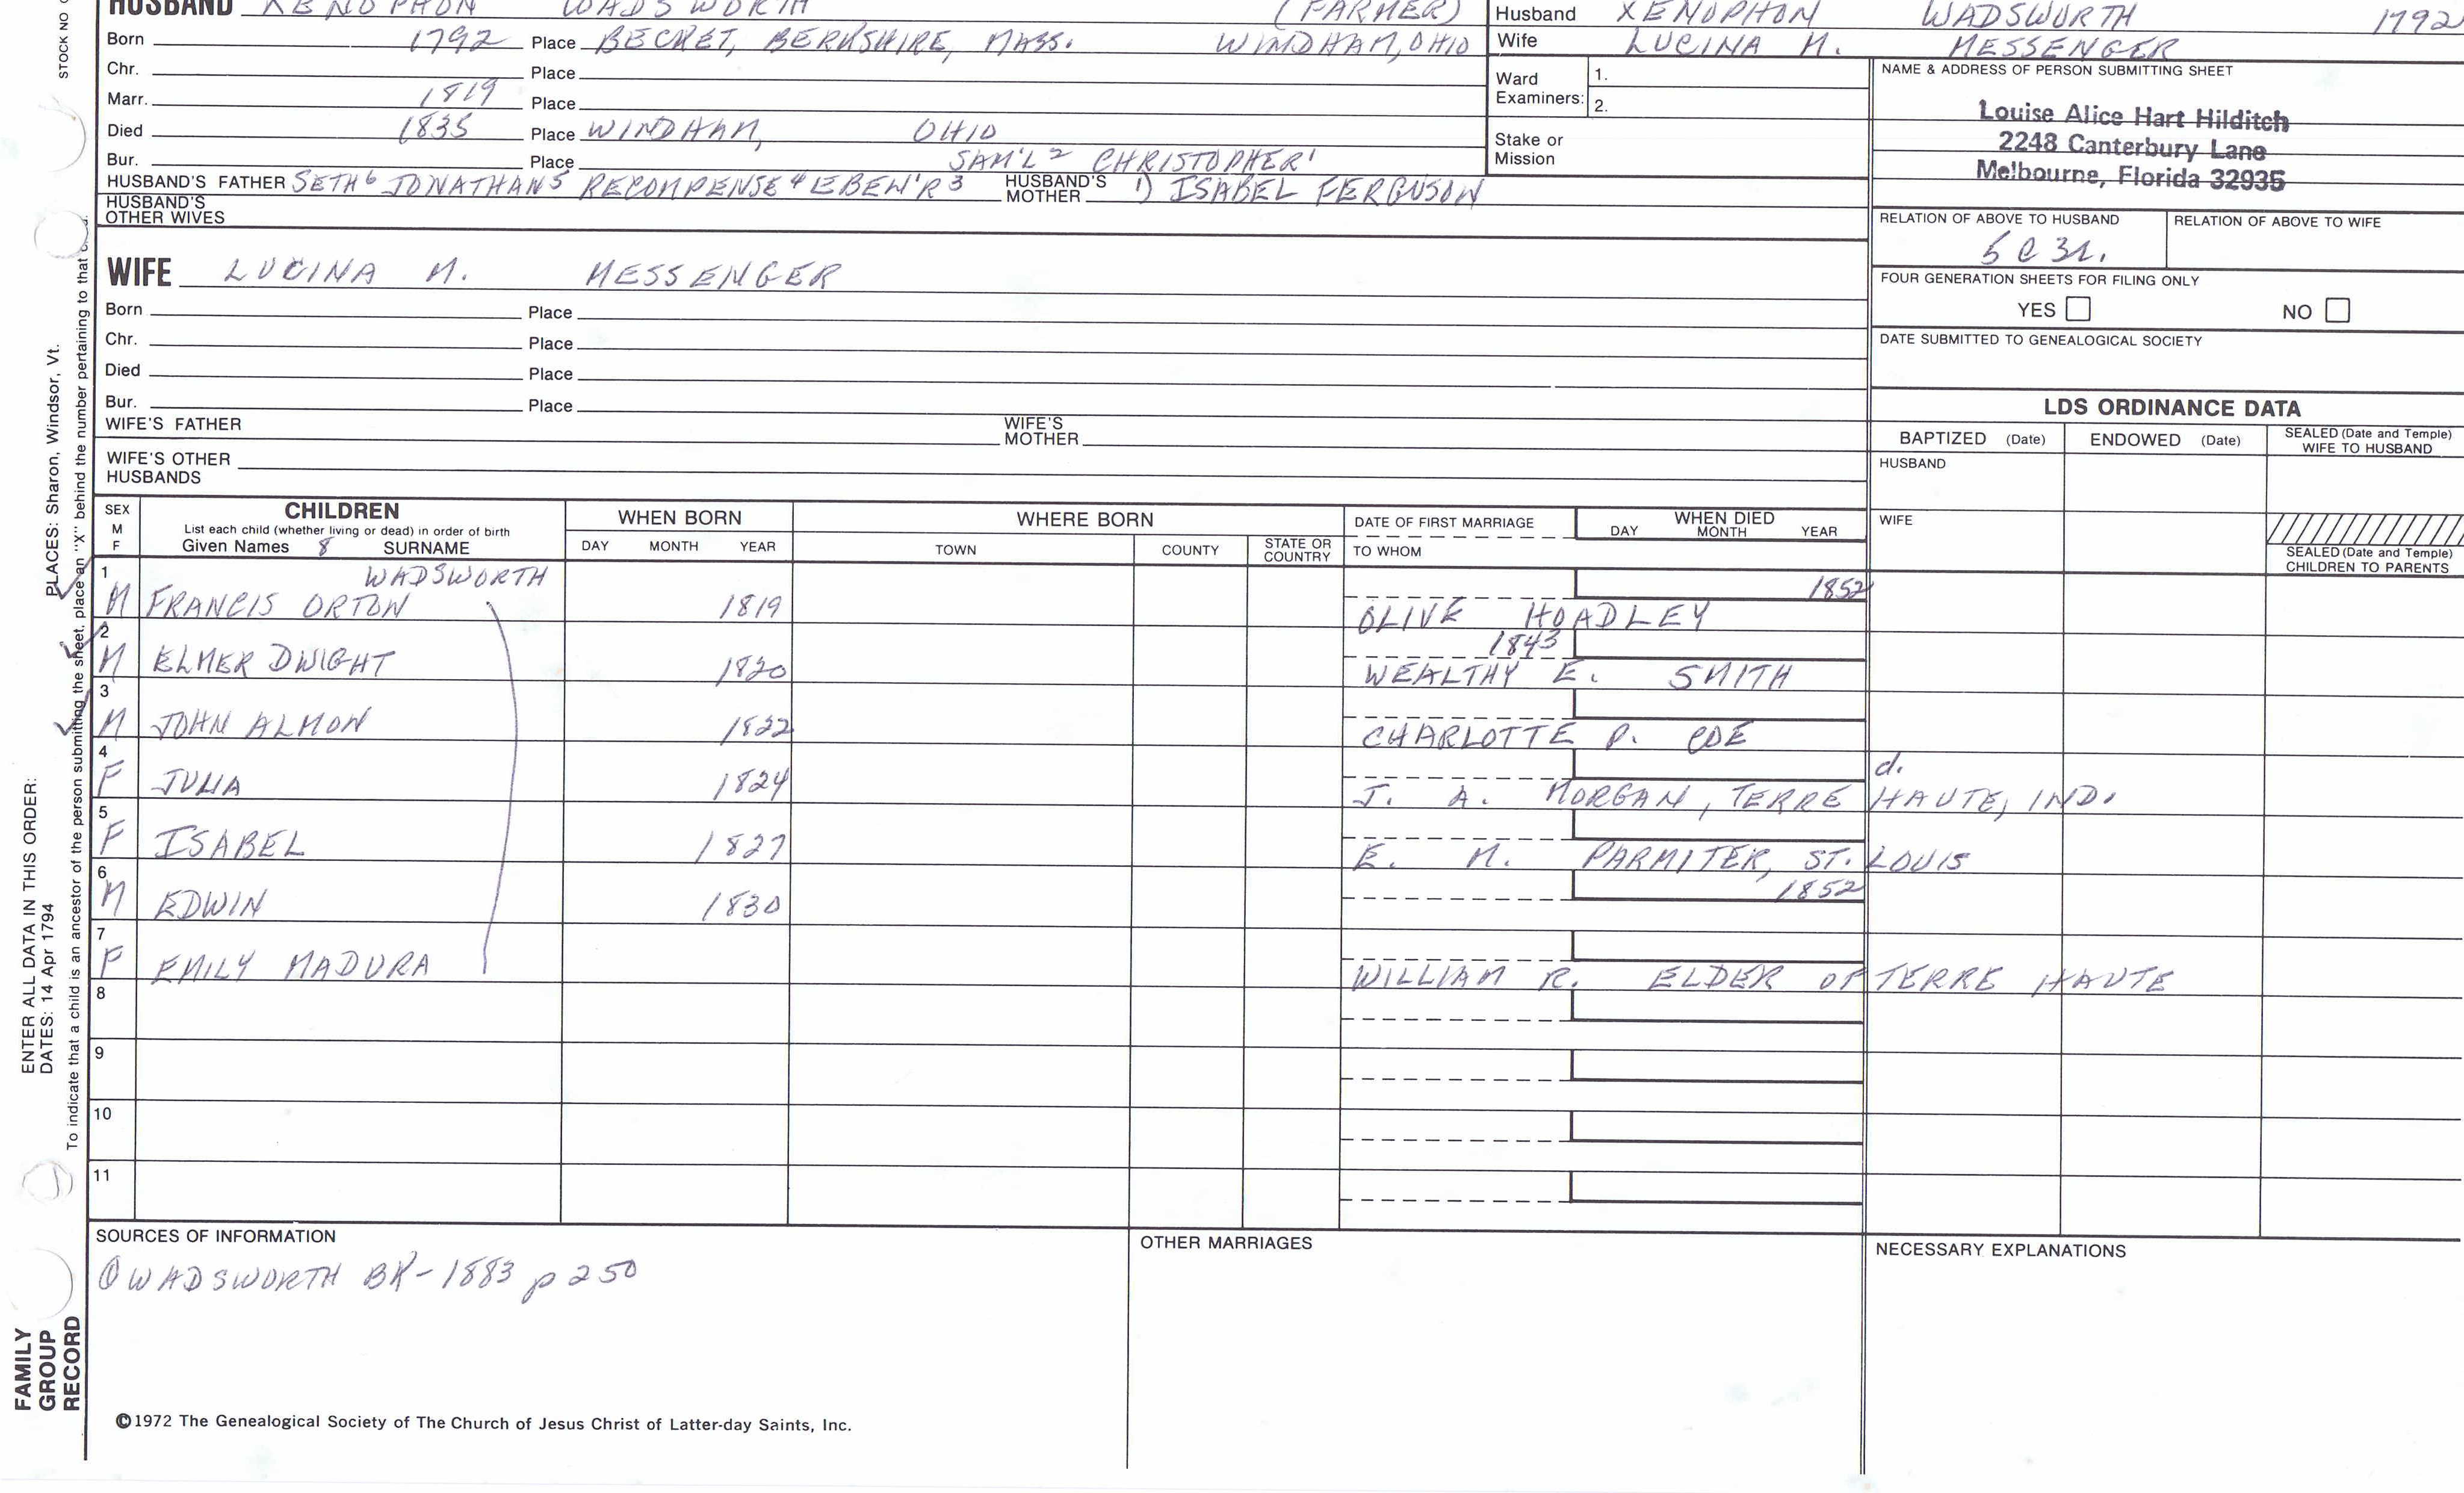 HUSBAND XENOPHON WADSWORTH (FARMER)
Born 1792 Place BECKET, BERKSHIRE, MASS. WINDHAM, OHIO
Chr. Place
Marr. 1819 Place
Died 1835 Place WINDHAM, OHIO
Bur. Place SAM'L² CHRISTOPHER¹
HUSBAND'S FATHER SETH⁶ JONATHAN⁵ RECOMPENSE⁴ EBEN'R³ HUSBAND'S MOTHER 1) ISABEL FERGUSON
HUSBAND'S OTHER WIVES
Husband XENOPHON WADSWORTH 1792
Wife LUCINA M. MESSENGER
Ward Examiners: 1.
2.
Stake or Mission
NAME & ADDRESS OF PERSON SUBMITTING SHEET
Louise Alice Hart Hilditch
2248 Canterbury Lane
Melbourne, Florida 32935
RELATION OF ABOVE TO HUSBAND RELATION OF ABOVE TO WIFE
5C3R.
FOUR GENERATION SHEETS FOR FILING ONLY
YES NO
DATE SUBMITTED TO GENEALOGICAL SOCIETY
WIFE LUCINA M. MESSENGER
Born Place
Chr. Place
Died Place
Bur. Place
WIFE'S FATHER WIFE'S MOTHER
WIFE'S OTHER HUSBANDS
LDS ORDINANCE DATA
BAPTIZED (Date) ENDOWED (Date) SEALED (Date and Temple) WIFE TO HUSBAND
HUSBAND
WIFE
SEALED (Date and Temple) CHILDREN TO PARENTS
SEX M F
CHILDREN
List each child (whether living or dead) in order of birth
Given Names 8 SURNAME
WHEN BORN DAY MONTH YEAR
WHERE BORN TOWN COUNTY STATE OR COUNTRY
DATE OF FIRST MARRIAGE TO WHOM
WHEN DIED DAY MONTH YEAR
1 WADSWORTH 1852
M FRANCIS ORTON 1819 OLIVE HOADLEY
2 1843
M ELMER DWIGHT 1820 WEALTHY E. SMITH
3
M JOHN ALMON 1822 CHARLOTTE P. COE
4 d.
F JULIA 1824 J. A. MORGAN, TERRE HAUTE, IND.
5
F ISABEL 1827 E. M. PARMITER, ST. LOUIS
6 1852
M EDWIN 1830
7
F EMILY MADURA WILLIAM R. ELDER OF TERRE HAUTE
8
9
10
11
SOURCES OF INFORMATION
① WADSWORTH BK-1883 p 250
OTHER MARRIAGES
NECESSARY EXPLANATIONS
©1972 The Genealogical Society of The Church of Jesus Christ of Latter-day Saints, Inc.
STOCK NO
ENTER ALL DATA IN THIS ORDER:
DATES: 14 Apr 1794 PLACES: Sharon, Windsor, Vt.
To indicate that a child is an ancestor of the person submitting the sheet, place an "X" behind the number pertaining to that
FAMILY
GROUP
RECORD